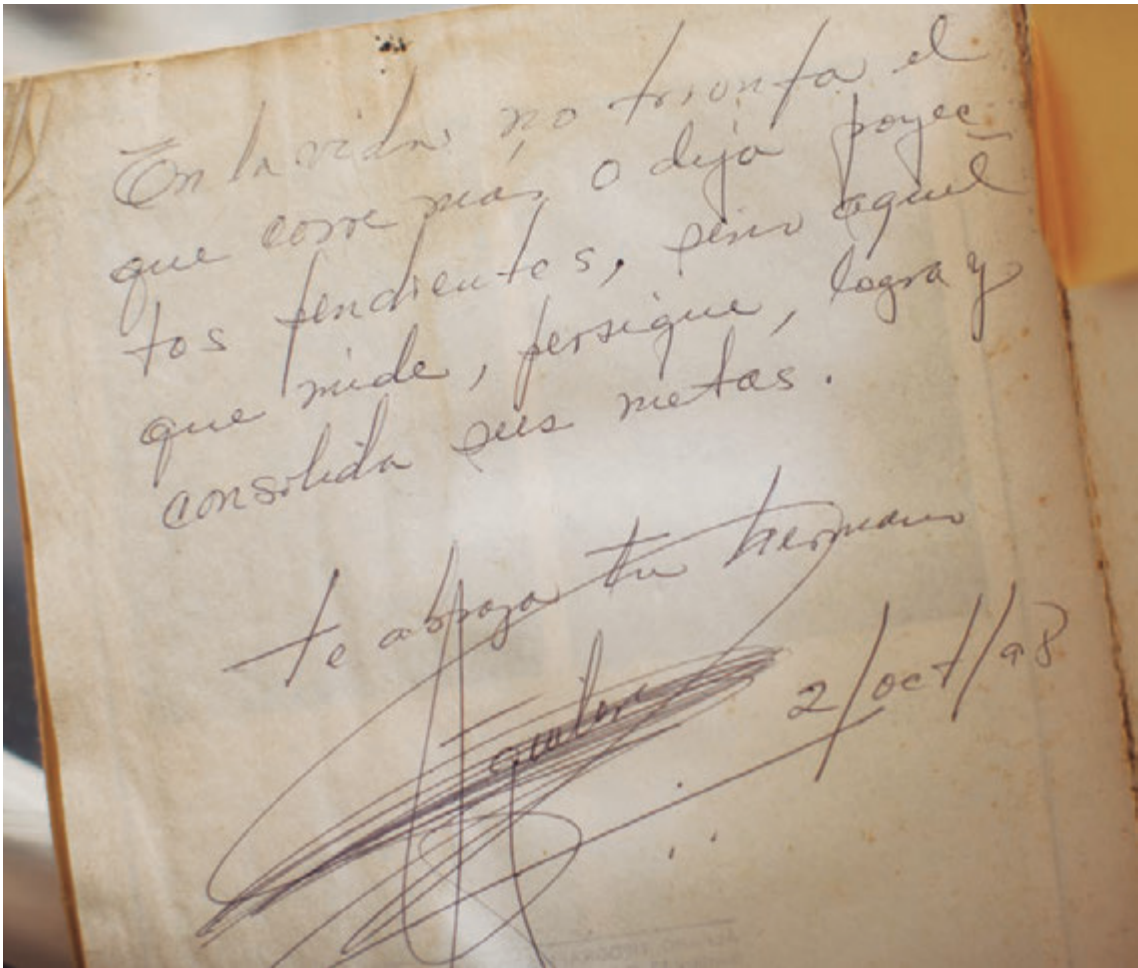 En la vida, no triunfa el
que corre mas, o deja poyec-
tos pendientes, sino aquel
que mide, persigue, logra y
consolida sus metas.
te abraza tu hermano
2/oct/98